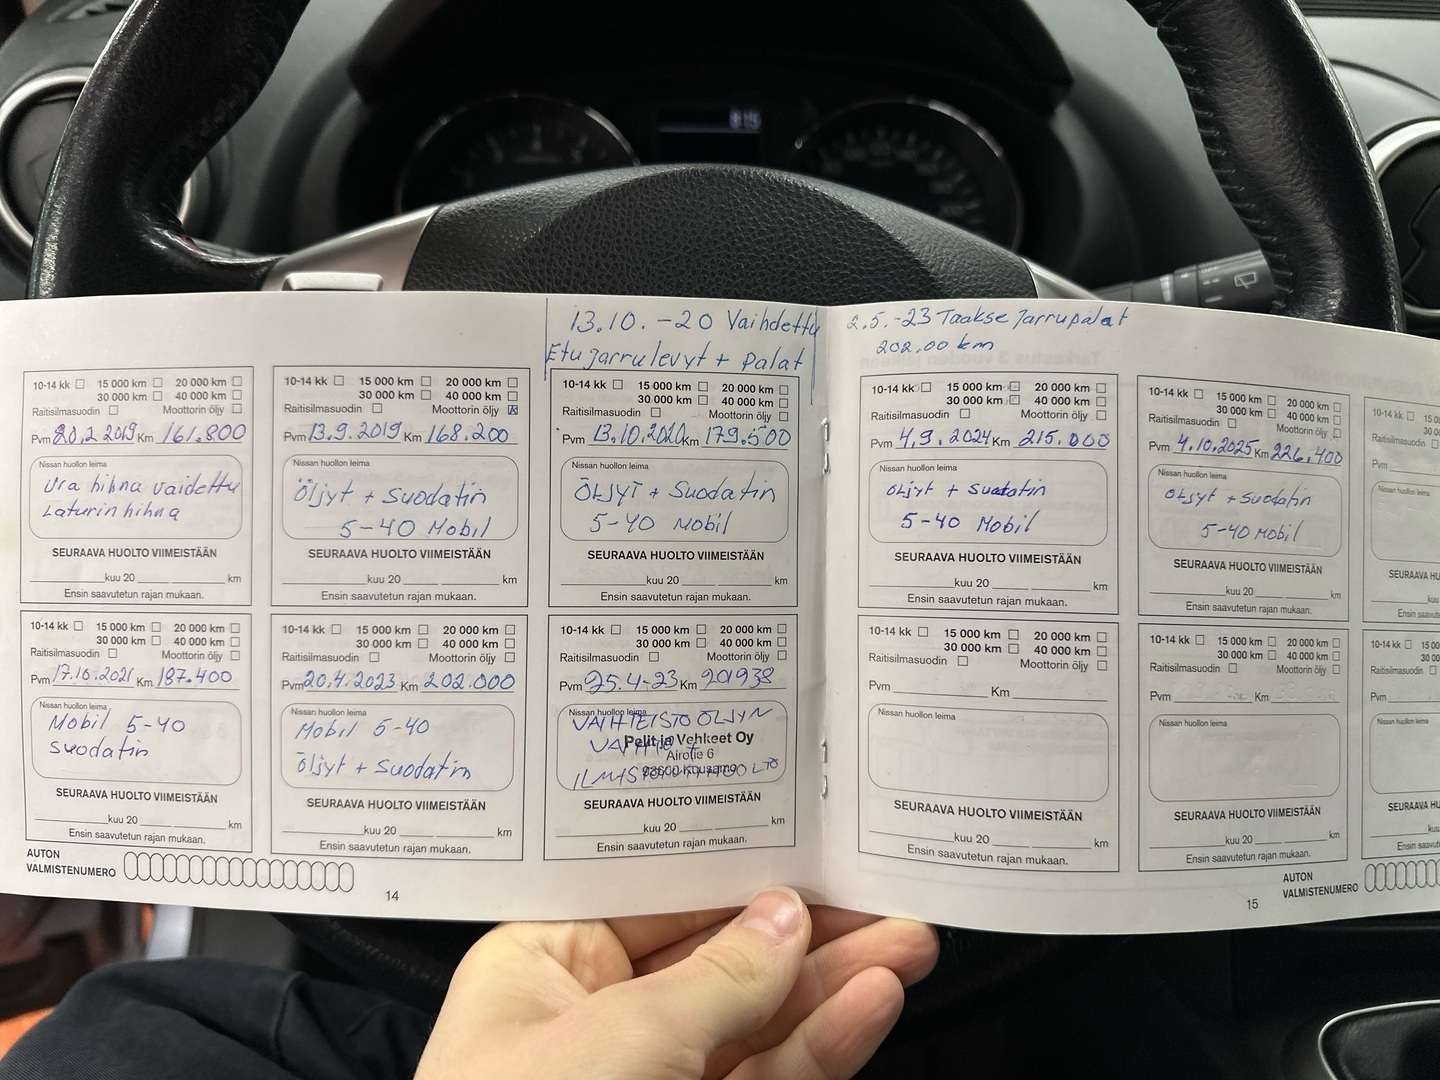 815
13.10. -20 Vaihdettu
Etu jarrulevyt + palat
10-14 kk 15 000 km 20 000 km
30 000 km 40 000 km
Raitisilmasuodin Moottorin öljy
Pvm 20.2 2019 Km 161.800
Nissan huollon leima
Ura hihna vaidettu
Laturin hihna
SEURAAVA HUOLTO VIIMEISTÄÄN
kuu 20 km
Ensin saavutetun rajan mukaan.
10-14 kk 15 000 km 20 000 km
30 000 km 40 000 km
Raitisilmasuodin Moottorin öljy
Pvm 13.9.2019 Km 168.200
Nissan huollon leima
Öljyt + Suodatin
5-40 Mobil
SEURAAVA HUOLTO VIIMEISTÄÄN
kuu 20 km
Ensin saavutetun rajan mukaan.
10-14 kk 15 000 km 20 000 km
30 000 km 40 000 km
Raitisilmasuodin Moottorin öljy
Pvm 13.10.2020 Km 179.500
Nissan huollon leima
ÖLJYT + Suodatin
5-40 Mobil
SEURAAVA HUOLTO VIIMEISTÄÄN
kuu 20 km
Ensin saavutetun rajan mukaan.
10-14 kk 15 000 km 20 000 km
30 000 km 40 000 km
Raitisilmasuodin Moottorin öljy
Pvm 17.10.2021 Km 187.400
Nissan huollon leima
Mobil 5-40
Suodatin
SEURAAVA HUOLTO VIIMEISTÄÄN
kuu 20 km
Ensin saavutetun rajan mukaan.
10-14 kk 15 000 km 20 000 km
30 000 km 40 000 km
Raitisilmasuodin Moottorin öljy
Pvm 20.4.2023 Km 202.000
Nissan huollon leima
Mobil 5-40
Öljyt + Suodatin
SEURAAVA HUOLTO VIIMEISTÄÄN
kuu 20 km
Ensin saavutetun rajan mukaan.
10-14 kk 15 000 km 20 000 km
30 000 km 40 000 km
Raitisilmasuodin Moottorin öljy
Pvm 25.4-23 Km 201938
Nissan huollon leima
VAIHTEISTO ÖLJYN
Pelit ja Vehkeet Oy
Airotie 6
93600 Kuusamo
SEURAAVA HUOLTO VIIMEISTÄÄN
kuu 20 km
Ensin saavutetun rajan mukaan.
AUTON
VALMISTENUMERO
14
2.5.-23 Taakse Jarrupalat
202.00 km
10-14 kk 15 000 km 20 000 km
30 000 km 40 000 km
Raitisilmasuodin Moottorin öljy
Pvm 4.9. 2024 Km 215.000
Nissan huollon leima
ÖLJYT + Suodatin
5-40 Mobil
SEURAAVA HUOLTO VIIMEISTÄÄN
kuu 20 km
Ensin saavutetun rajan mukaan.
10-14 kk 15 000 km 20 000 km
30 000 km 40 000 km
Raitisilmasuodin Moottorin öljy
Pvm 4.10.2025 Km 226.400
Nissan huollon leima
ÖLJYT + Suodatin
5-40 Mobil
SEURAAVA HUOLTO VIIMEISTÄÄN
kuu 20 km
Ensin saavutetun rajan mukaan.
10-14 kk
Raitisilmasuodin
Pvm
Nissan huollon leima
10-14 kk 15 000 km 20 000 km
30 000 km 40 000 km
Raitisilmasuodin Moottorin öljy
Pvm Km
Nissan huollon leima
SEURAAVA HUOLTO VIIMEISTÄÄN
kuu 20 km
Ensin saavutetun rajan mukaan.
10-14 kk 15 000 km 20 000 km
30 000 km 40 000 km
Raitisilmasuodin Moottorin öljy
Pvm Km
Nissan huollon leima
SEURAAVA HUOLTO VIIMEISTÄÄN
kuu 20 km
Ensin saavutetun rajan mukaan.
10-14 kk
Raitisilmasuodin
Pvm
Nissan huollon leima
AUTON
VALMISTENUMERO
15